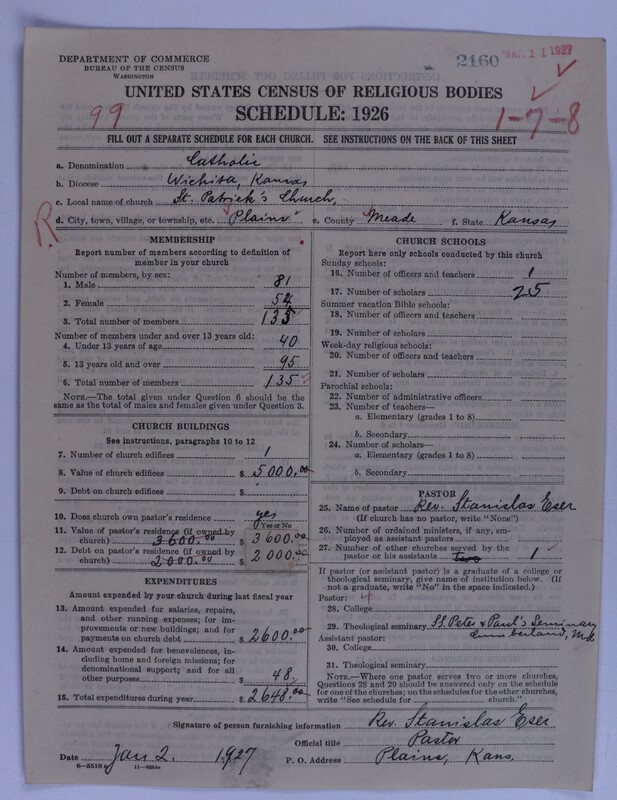 DEPARTMENT OF COMMERCE
BUREAU OF THE CENSUS
WASHINGTON
2160 MAR 11 1927
UNITED STATES CENSUS OF RELIGIOUS BODIES
SCHEDULE: 1926
99
1-7-8
FILL OUT A SEPARATE SCHEDULE FOR EACH CHURCH. SEE INSTRUCTIONS ON THE BACK OF THIS SHEET
a. Denomination Catholic
b. Diocese Wichita, Kansas
c. Local name of church St. Patrick's Church,
d. City, town, village, or township, etc. Plains e. County Meade f. State Kansas
R
MEMBERSHIP
Report number of members according to definition of
member in your church
Number of members, by sex:
1. Male 81
2. Female 54
3. Total number of members 135
Number of members under and over 13 years old:
4. Under 13 years of age 40
5. 13 years old and over 95
6. Total number of members 135
NOTE.—The total given under Question 6 should be
same as the total of males and females given under Question 3.
CHURCH BUILDINGS
See instructions, paragraphs 10 to 12
7. Number of church edifices 1
8. Value of church edifices $ 5000.00
9. Debt on church edifices $
10. Does church own pastor's residence yes
Yes or No
11. Value of pastor's residence (if owned by
church) 3600.00 $ 3600.00
12. Debt on pastor's residence (if owned by
church) 2000.00 $ 2000.00
EXPENDITURES
Amount expended by your church during last fiscal year
13. Amount expended for salaries, repairs,
and other running expenses; for im-
provements or new buildings; and for
payments on church debt $ 2600.00
14. Amount expended for benevolences, in-
cluding home and foreign missions; for
denominational support; and for all
other purposes $ 48.
15. Total expenditures during year $ 2648.00
CHURCH SCHOOLS
Report here only schools conducted by this church
Sunday schools:
16. Number of officers and teachers 1
17. Number of scholars 25
Summer vacation Bible schools:
18. Number of officers and teachers
19. Number of scholars
Week-day religious schools:
20. Number of officers and teachers
21. Number of scholars
Parochial schools:
22. Number of administrative officers
23. Number of teachers—
a. Elementary (grades 1 to 8)
b. Secondary
24. Number of scholars—
a. Elementary (grades 1 to 8)
b. Secondary
PASTOR
25. Name of pastor Rev. Stanislas Eser
(If church has no pastor, write "None")
26. Number of ordained ministers, if any, em-
ployed as assistant pastors
27. Number of other churches served by the
pastor or his assistants two 1
If pastor (or assistant pastor) is a graduate of a college or
theological seminary, give name of institution below. (If
not a graduate, write "No" in the space indicated.)
Pastor: 4
28. College
29. Theological seminary SS. Peter & Paul's Seminary
Cumberland, Md.
Assistant pastor:
30. College
31. Theological seminary
NOTE.—Where one pastor serves two or more churches,
Questions 28 and 29 should be answered only on the schedule
for one of the churches; on the schedules for the other churches,
write "See schedule for church."
Signature of person furnishing information Rev. Stanislas Eser
Official title Pastor
Date Jan 2. 1927 P. O. Address Plains, Kans.
8-5518a